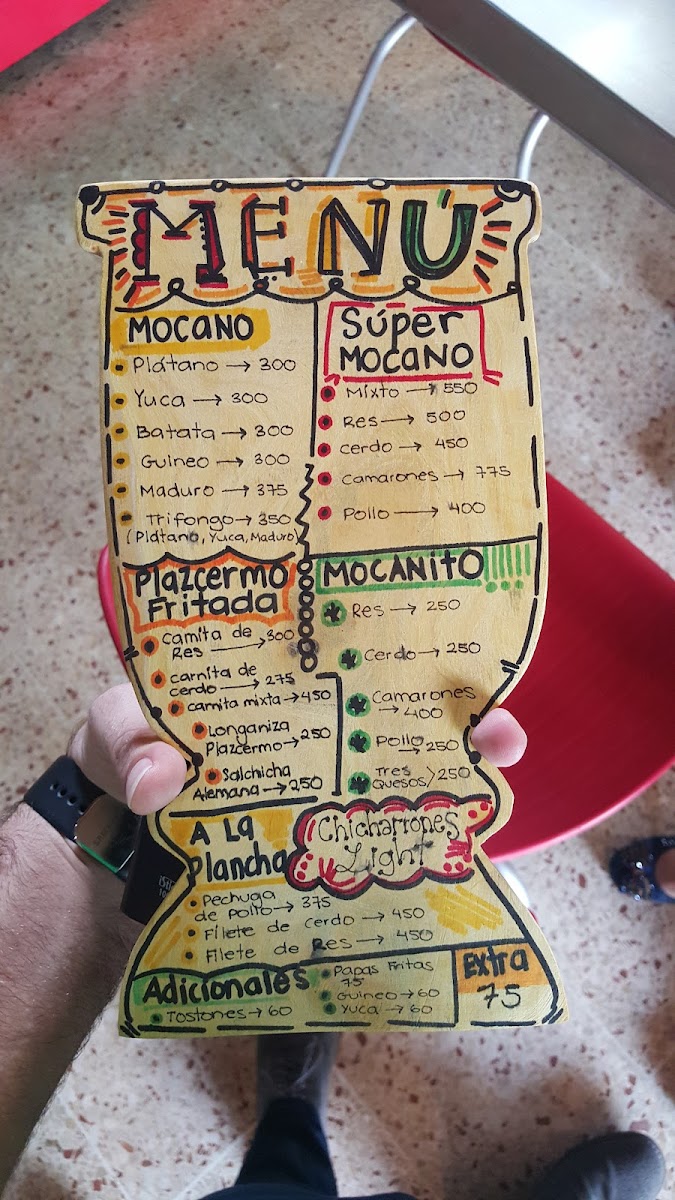 MENÚ
MOCANO
Plátano → 300
Yuca → 300
Batata → 300
Guineo → 300
Maduro → 375
Trifongo → 350
(Plátano, Yuca, Maduro)
SÚPER
MOCANO
Mixto → 550
Res → 500
cerdo → 450
camarones → 775
Pollo → 400
Plazcermo
Fritada
carnita de
Res → 300
carnita de
cerdo → 275
carnita mixta → 450
Longaniza
Plazcermo → 250
Salchicha
Alemana → 250
MOCANITO
Res → 250
Cerdo → 250
Camarones
→ 400
Pollo → 250
Tres
Quesos > 250
A La
Plancha
Chicharrones
Light
Pechuga
de pollo → 375
Filete de cerdo → 450
Filete de Res → 450
Adicionales
Tostones → 60
Papas Fritas
75
Guineo → 60
Yuca → 60
Extra
75